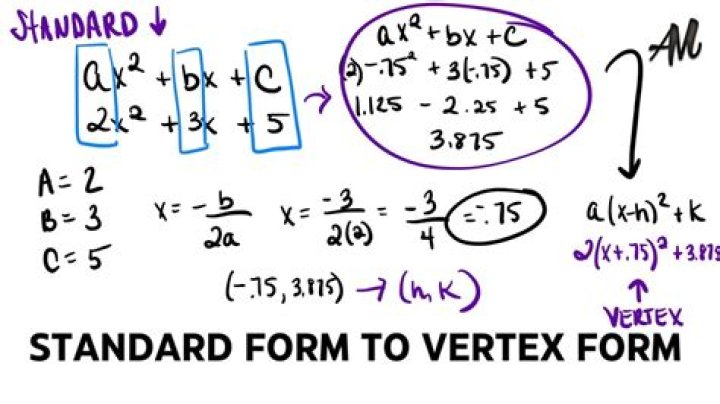 STANDARD ↓
ax² + bx + C
2x² + 3x + 5
A = 2
B = 3
C = 5
ax² + bx + C
(2)-.75² + 3(-.75) + 5
1.125 - 2.25 + 5
3.875
x = -b/2a x = -3/2(2) = -3/4 = -.75
(-.75, 3.875) → (h, K)
AM
a(x-h)² + K
2(x+.75)² + 3.875
↑
VERTEX
STANDARD FORM TO VERTEX FORM